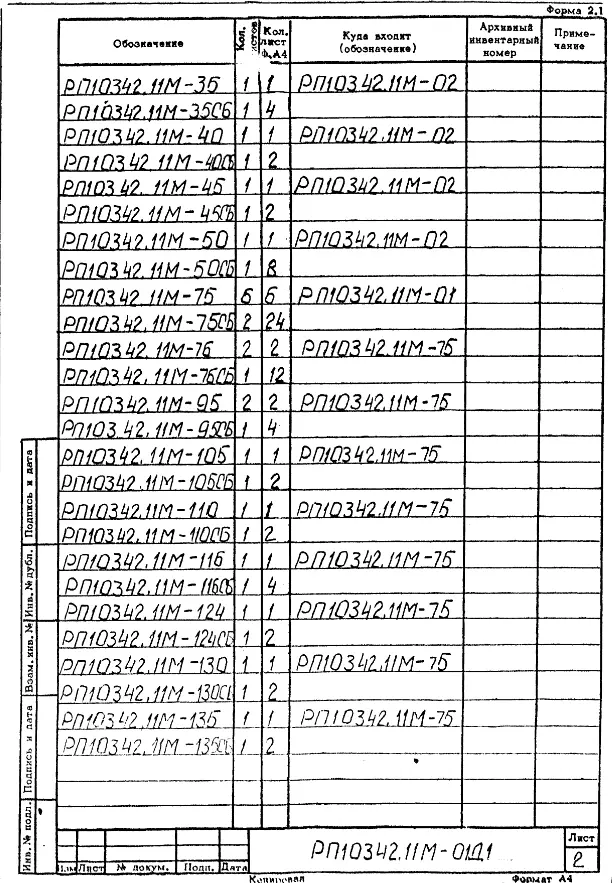 Форма 2.1
Обозначение Кол. листов Кол. лист ф.А4 Куда входит (обозначение) Архивный инвентарный номер Приме- чание
РП10342.11М-35 1 1 РП10342.11М-02
РП10342.11М-35СБ 1 4
РП10342.11М-40 1 1 РП10342.11М-02
РП10342.11М-40СБ 1 2
РП10342.11М-45 1 1 РП10342.11М-02
РП10342.11М-45СБ 1 2
РП10342.11М-50 1 1 РП10342.11М-02
РП10342.11М-50СБ 1 8
РП10342.11М-75 6 6 РП10342.11М-01
РП10342.11М-75СБ 2 24
РП10342.11М-76 2 2 РП10342.11М-75
РП10342.11М-76СБ 1 12
РП10342.11М-95 2 2 РП10342.11М-75
РП10342.11М-95СБ 1 4
РП10342.11М-105 1 1 РП10342.11М-75
РП10342.11М-105СБ 1 2
РП10342.11М-110 1 1 РП10342.11М-75
РП10342.11М-110СБ 1 2
РП10342.11М-116 1 1 РП10342.11М-75
РП10342.11М-116СБ 1 4
РП10342.11М-124 1 1 РП10342.11М-75
РП10342.11М-124СБ 1 2
РП10342.11М-130 1 1 РП10342.11М-75
РП10342.11М-130СБ 1 2
РП10342.11М-135 1 1 РП10342.11М-75
РП10342.11М-135СБ 1 2
Подпись и дата
Инв.№ дубл.
Взам. инв.№
Подпись и дата
Инв.№ подл.
РП10342.11М-01Д1
Лист
2
Изм Лист № докум. Подп. Дата
Копировал Формат А4